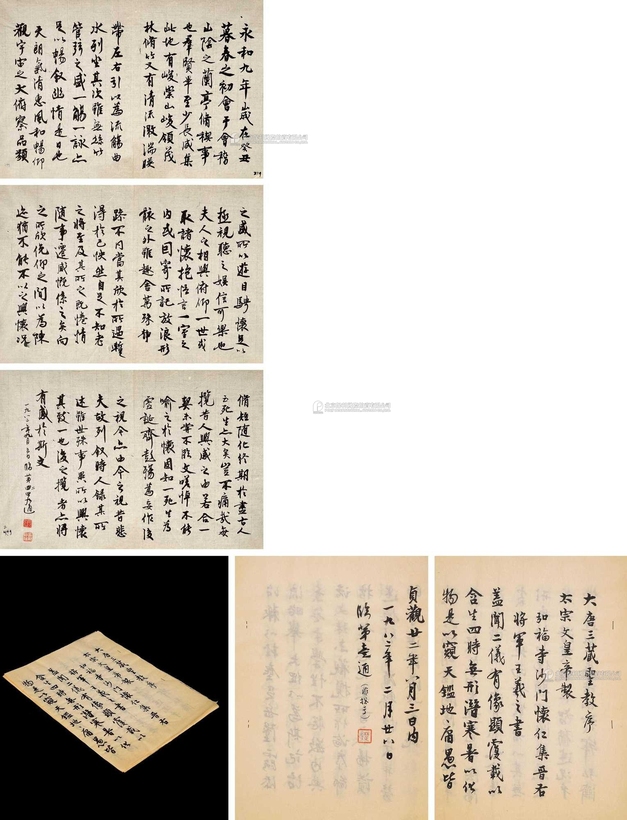 永和九年歲在癸丑
暮春之初會于會稽
山陰之蘭亭脩稧事
也羣賢畢至少長咸集
此地有峻崇山峻領茂
林脩竹又有清流激湍暎
帶左右引以為流觴曲
水列坐其次雖無絲竹
管弦之盛一觴一詠亦
足以暢叙幽情是日也
天朗氣清惠風和暢仰
觀宇宙之大俯察品類
之盛所以遊目騁懷足以
極視聽之娛信可樂也
夫人之相與俯仰一世或
取諸懷抱悟言一室之
內或因寄所託放浪形
骸之外雖趣舍萬殊靜
躁不同當其欣於所遇暫
得於己快然自足不知老
之將至及其所之既惓情
隨事遷感慨係之矣向
之所欣俛仰之間以為陳
迹猶不能不以之興懷況
脩短隨化終期於盡古人
云死生亦大矣豈不痛哉每
攬昔人興感之由若合一
契未嘗不臨文嗟悼不能
喻之於懷固知一死生為
虛誕齊彭殤為妄作後
之視今亦由今之視昔悲
夫故列叙時人錄其所
述雖世殊事異所以興懷
其致一也後之攬者亦將
有感於斯文
大唐三藏聖教序
太宗文皇帝製
弘福寺沙門懷仁集晉右
將軍王羲之書
蓋聞二儀有像顯覆載以
含生四時無形潛寒暑以化
物是以窺天鑑地庸愚皆
貞觀廿二年八月三日內
一九八二年二月廿八日